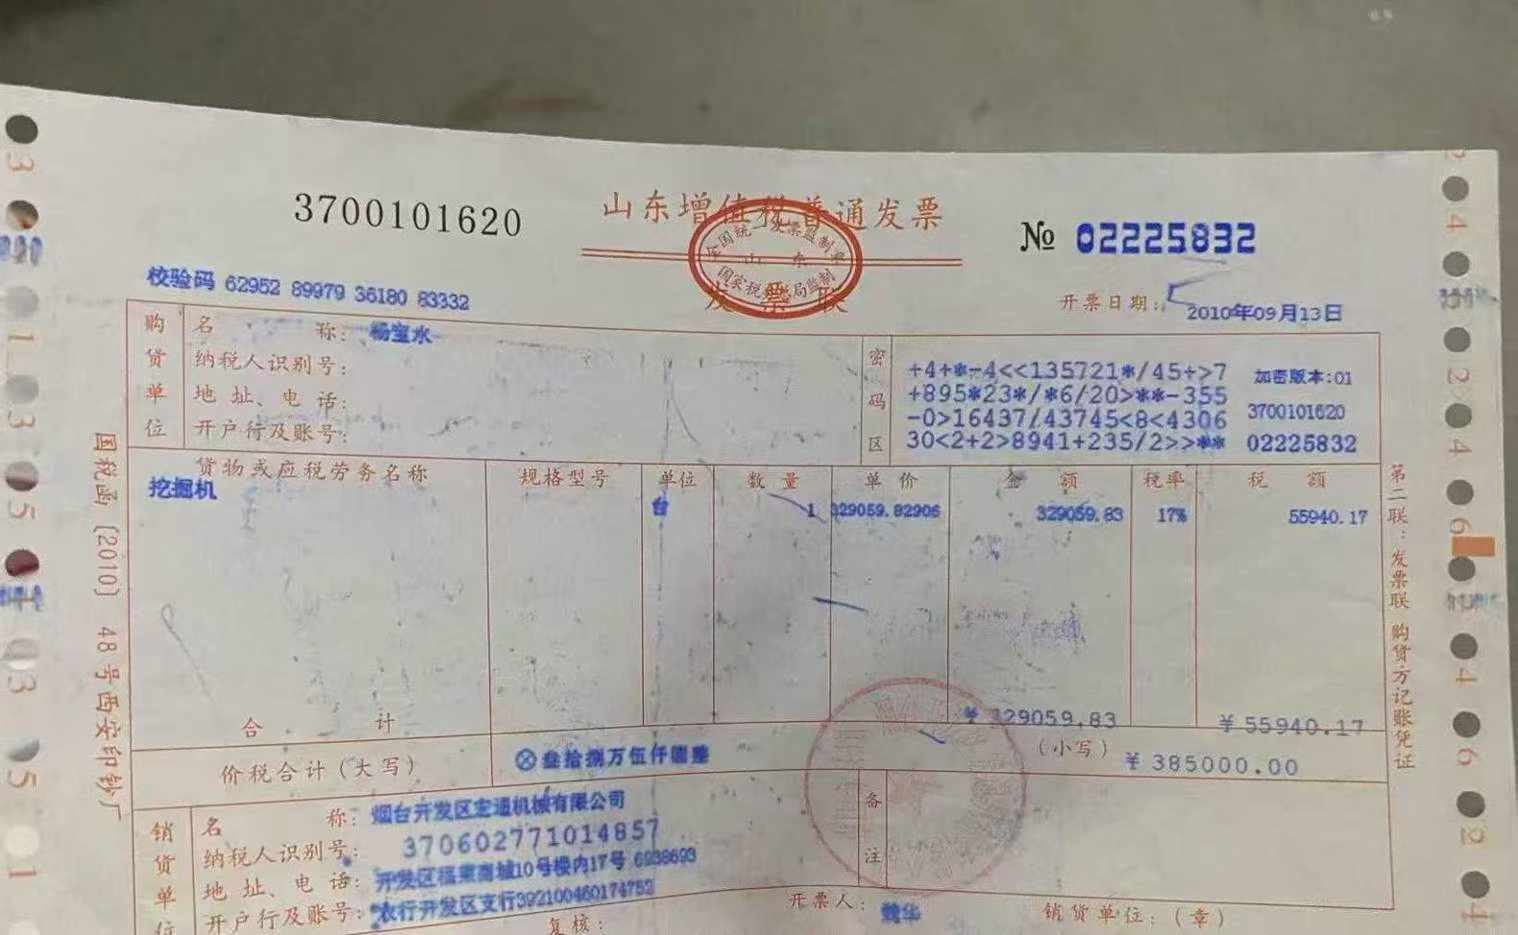 3700101620
山东增值税普通发票
全国统一发票监制章
山东
国家税务局监制
发票联
№ 02225832
校验码 62952 89979 36180 83332
开票日期: 2010年09月13日
购货单位
名 称: 杨宝水
纳税人识别号:
地 址、电 话:
开户行及账号:
密码区
+4+*-4<<135721*/45+>7 加密版本:01
+895*23*/*6/20>**-355
-0>16437/43745<8<4306 3700101620
30<2+2>8941+235/2>>** 02225832
货物或应税劳务名称 规格型号 单位 数 量 单 价 金 额 税率 税 额
挖掘机 台 1 329059.82906 329059.83 17% 55940.17
合 计 ¥ 329059.83 ¥ 55940.17
价税合计(大写) ⊗叁拾捌万伍仟圆整 (小写) ¥ 385000.00
销货单位
名 称: 烟台开发区宏通机械有限公司
纳税人识别号: 370602771014857
地 址、电 话: 开发区福莱商城10号楼内17号 6938693
开户行及账号: 农行开发区支行392100460174752
备注
复核: 开票人: 魏华 销货单位:(章)
国税函〔2010〕48号西安印钞厂
第二联:发票联 购货方记账凭证